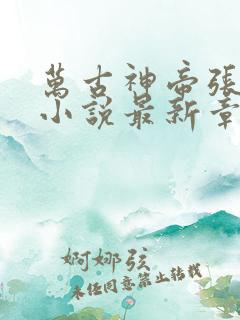 萬古神帝張
小説最新章
婀娜弦
未经同意禁止转载